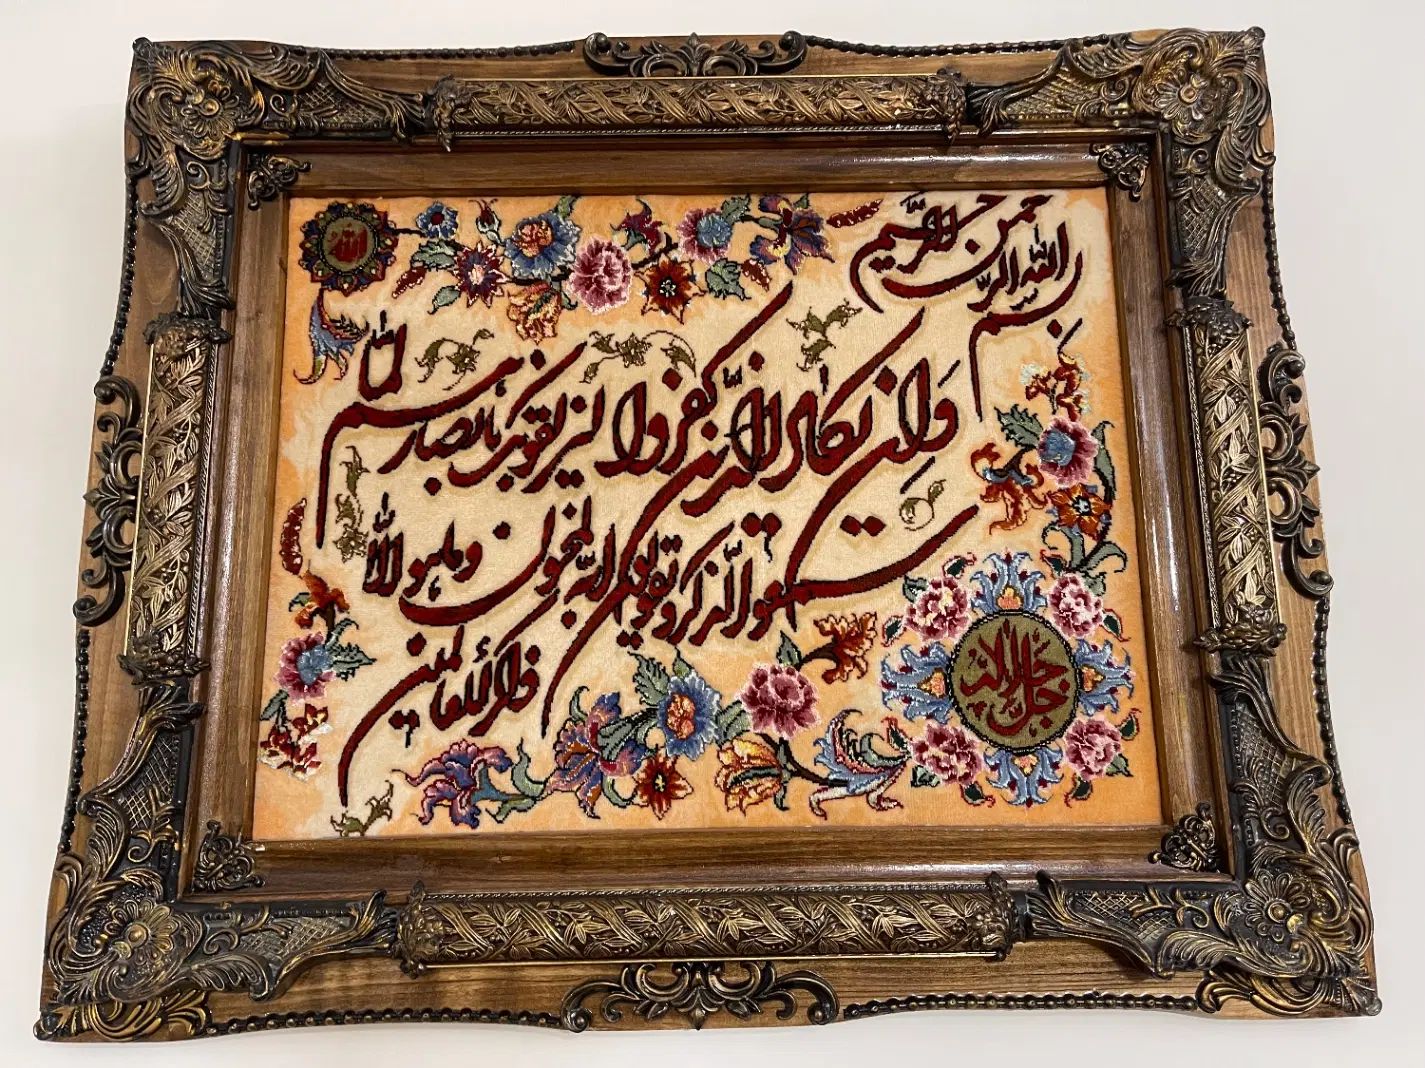 بسم الله الرحمن الرحیم
الله
وان یکاد الذین کفروا لیزلقونک بابصارهم لما
سمعوا الذکر و یقولون انه لمجنون وما هو الا
ذکر للعالمین
جل جلاله